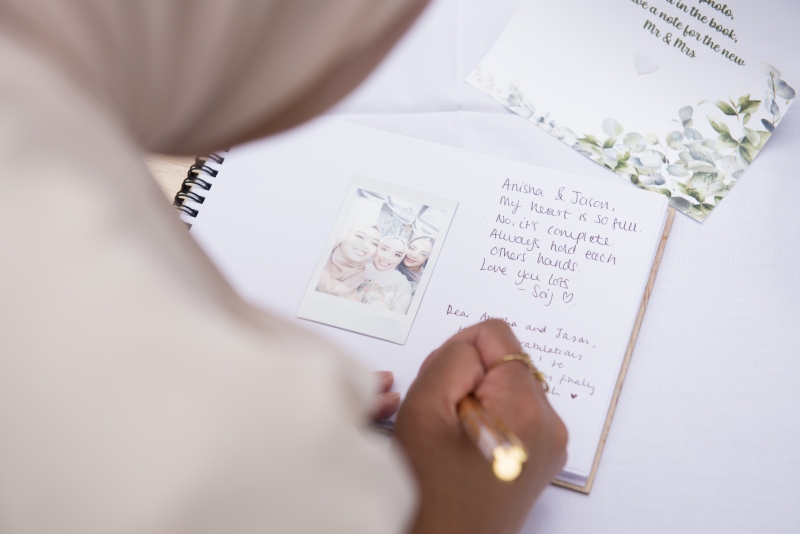 photo,
in the book,
a note for the new
Mr & Mrs
Anisha & Jason,
My heart is so full.
No, it's complete.
Always hold each
others hands.
Love you lots
- Saj ♡.
Dear Anisha and Jason,
so
finally
♥